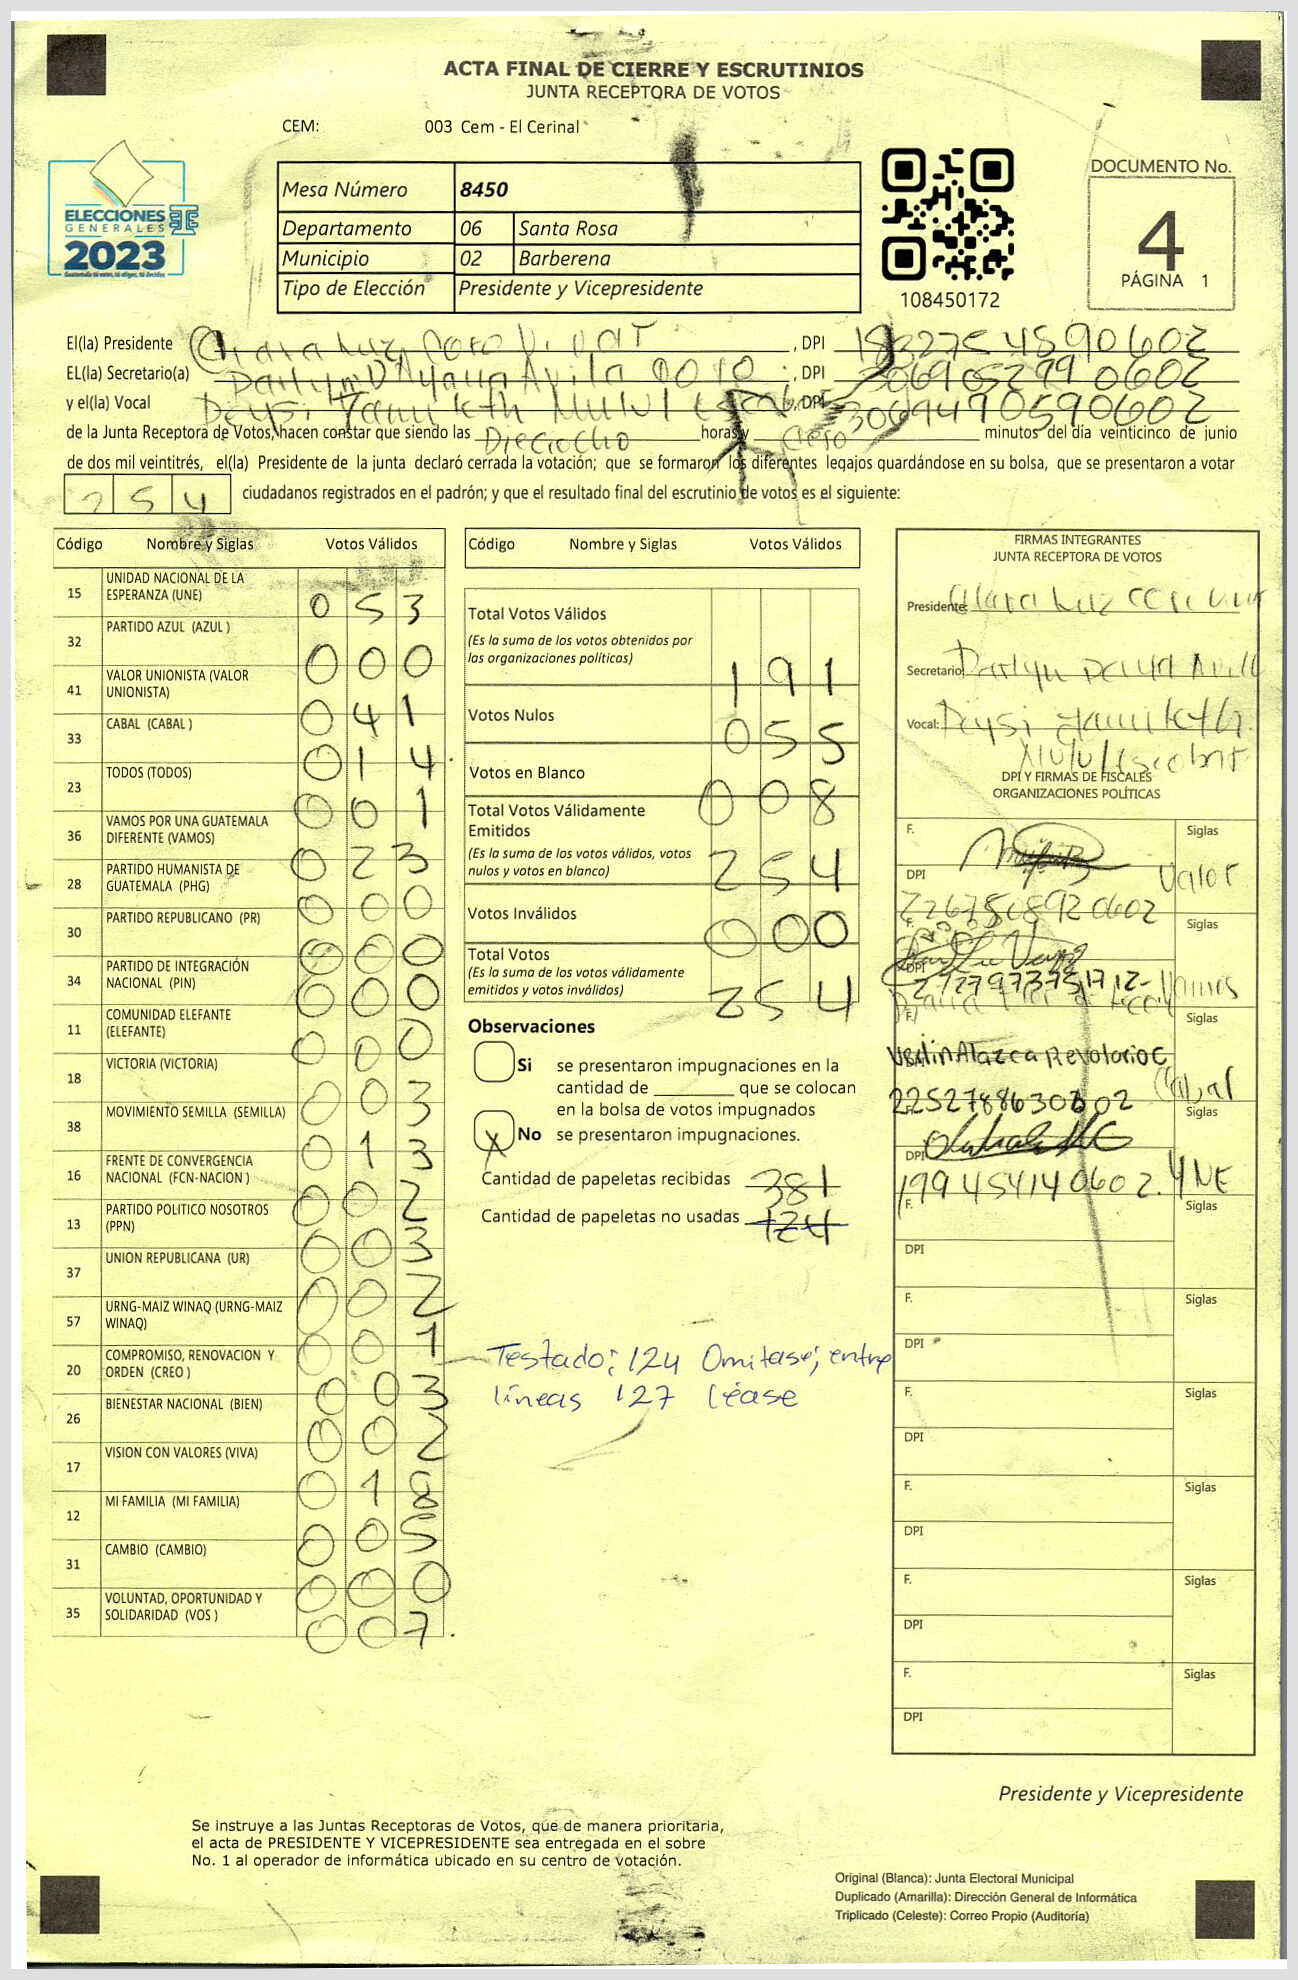 ACTA FINAL DE CIERRE Y ESCRUTINIOS
JUNTA RECEPTORA DE VOTOS
CEM: 003 Cem - El Cerinal
ELECCIONES
GENERALES
2023
Guatemala tú votas, tú eliges, tú decides
Mesa Número 8450
Departamento 06 Santa Rosa
Municipio 02 Barberena
Tipo de Elección Presidente y Vicepresidente
108450172
DOCUMENTO No.
4
PÁGINA 1
El(la) Presidente , DPI
EL(la) Secretario(a) , DPI
y el(la) Vocal , DPI 3069490590602
de la Junta Receptora de Votos, hacen constar que siendo las Dieciocho horas y Cero minutos del día veinticinco de junio
de dos mil veintitrés, el(la) Presidente de la junta declaró cerrada la votación; que se formaron los diferentes legajos guardándose en su bolsa, que se presentaron a votar
254 ciudadanos registrados en el padrón; y que el resultado final del escrutinio de votos es el siguiente:
Código Nombre y Siglas Votos Válidos
15 UNIDAD NACIONAL DE LA
ESPERANZA (UNE) 053
32 PARTIDO AZUL (AZUL ) 000
41 VALOR UNIONISTA (VALOR
UNIONISTA) 041
33 CABAL (CABAL ) 014
23 TODOS (TODOS) 001
36 VAMOS POR UNA GUATEMALA
DIFERENTE (VAMOS) 023
28 PARTIDO HUMANISTA DE
GUATEMALA (PHG) 000
30 PARTIDO REPUBLICANO (PR) 000
34 PARTIDO DE INTEGRACIÓN
NACIONAL (PIN) 000
11 COMUNIDAD ELEFANTE
(ELEFANTE) 000
18 VICTORIA (VICTORIA) 003
38 MOVIMIENTO SEMILLA (SEMILLA) 013
16 FRENTE DE CONVERGENCIA
NACIONAL (FCN-NACION ) 002
13 PARTIDO POLITICO NOSOTROS
(PPN) 003
37 UNION REPUBLICANA (UR) 002
57 URNG-MAIZ WINAQ (URNG-MAIZ
WINAQ) 001
20 COMPROMISO, RENOVACION Y
ORDEN (CREO ) 003
26 BIENESTAR NACIONAL (BIEN) 002
17 VISION CON VALORES (VIVA) 018
12 MI FAMILIA (MI FAMILIA) 005
31 CAMBIO (CAMBIO) 000
35 VOLUNTAD, OPORTUNIDAD Y
SOLIDARIDAD (VOS ) 007
Código Nombre y Siglas Votos Válidos
Total Votos Válidos
(Es la suma de los votos obtenidos por
las organizaciones políticas) 191
Votos Nulos 055
Votos en Blanco 008
Total Votos Válidamente
Emitidos
(Es la suma de los votos válidos, votos
nulos y votos en blanco) 254
Votos Inválidos 000
Total Votos
(Es la suma de los votos válidamente
emitidos y votos inválidos) 254
Observaciones
Si se presentaron impugnaciones en la
cantidad de ________ que se colocan
en la bolsa de votos impugnados
X No se presentaron impugnaciones.
Cantidad de papeletas recibidas 381
Cantidad de papeletas no usadas 124
Testado: 124 Omitase; entre
líneas 127 léase
FIRMAS INTEGRANTES
JUNTA RECEPTORA DE VOTOS
Presidente:
Secretario:
Vocal:
DPI Y FIRMAS DE FISCALES
ORGANIZACIONES POLÍTICAS
F. Siglas
DPI Valor
F. Siglas
DPI Vamos
F. Siglas
Cabal
Siglas
DPI
199454140602. UNE
F. Siglas
DPI
F. Siglas
DPI
F. Siglas
DPI
F. Siglas
DPI
F. Siglas
DPI
F. Siglas
DPI
Presidente y Vicepresidente
Se instruye a las Juntas Receptoras de Votos, que de manera prioritaria,
el acta de PRESIDENTE Y VICEPRESIDENTE sea entregada en el sobre
No. 1 al operador de informática ubicado en su centro de votación.
Original (Blanca): Junta Electoral Municipal
Duplicado (Amarilla): Dirección General de Informática
Triplicado (Celeste): Correo Propio (Auditoría)